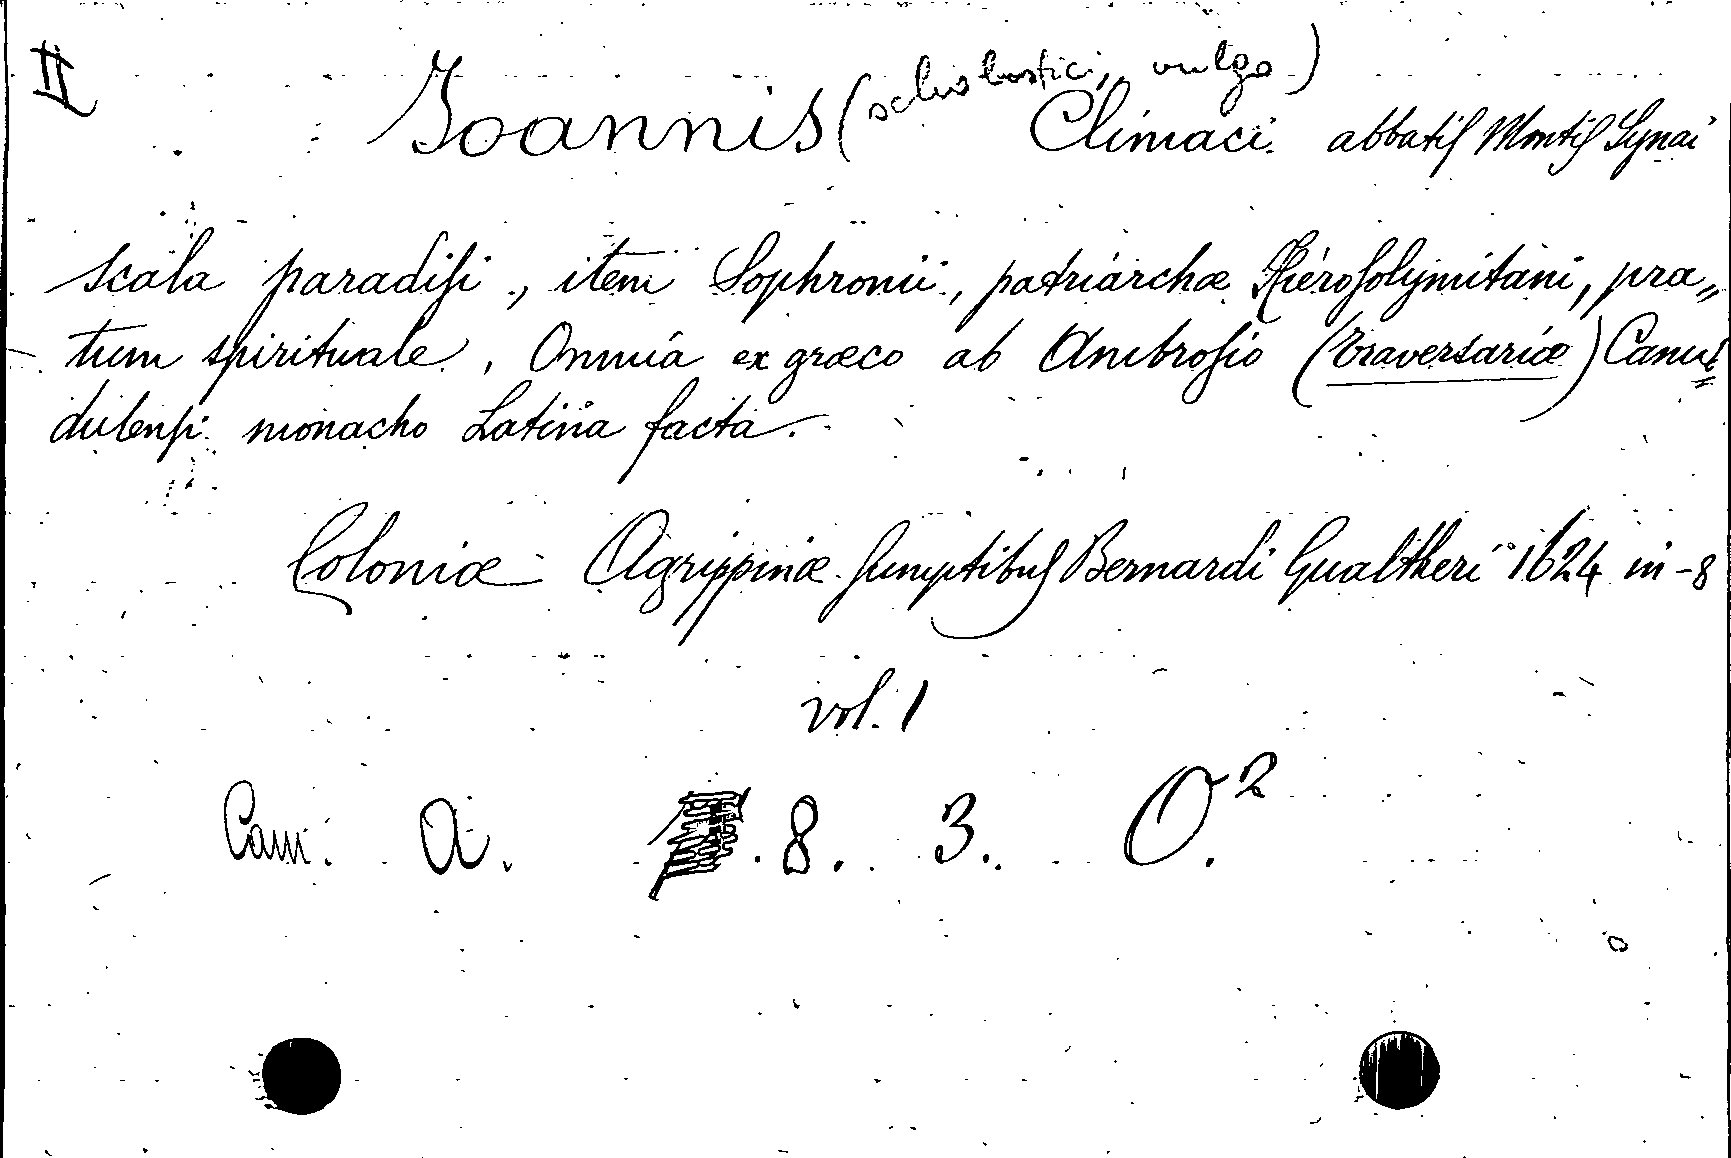 II
Joannis (scholastici, vulgo) Climaci abbatis Montis Synai
scala paradisi, item Sophronii, patriarchæ Hierosolymitani, pra„
tum spirituale, Omnia ex græco ab Ambrosio (traversariæ) Camal„
dulensi monacho Latina facta.
Coloniæ Agrippinæ sumptibus Bernardi Gualtheri 1624 in-8
vol. 1
Cam. A. 8. 3. O.²